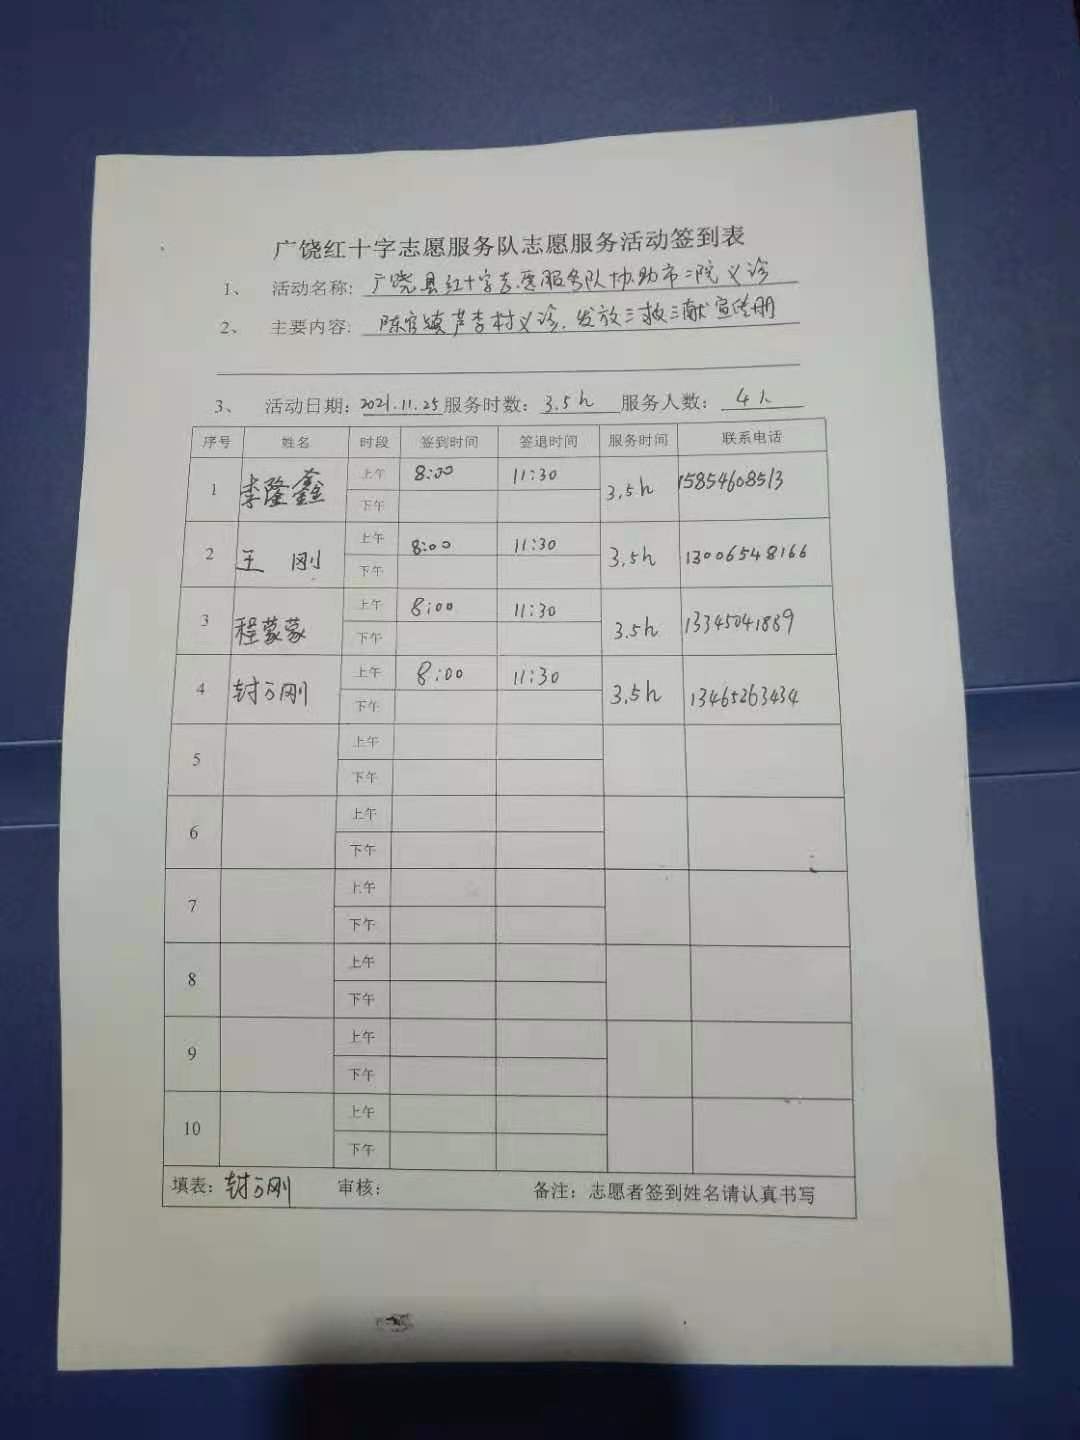 广饶红十字志愿服务队志愿服务活动签到表
1、 活动名称: 广饶县红十字志愿服务队协助市二院义诊
2、 主要内容: 陈官镇芦李村义诊.发放三救三献宣传册
3、 活动日期: 2021.11.25 服务时数: 3.5h 服务人数: 4人
序号 姓名 时段 签到时间 签退时间 服务时间 联系电话
1 李隆鑫 上午 8:00 11:30 3.5h 15854608513
下午
2 王 刚 上午 8:00 11:30 3.5h 13006548166
下午
3 程蒙蒙 上午 8:00 11:30 3.5h 13345041889
下午
4 封方刚 上午 8:00 11:30 3.5h 13465263434
下午
5 上午
下午
6 上午
下午
7 上午
下午
8 上午
下午
9 上午
下午
10 上午
下午
填表: 封方刚 审核: 备注: 志愿者签到姓名请认真书写